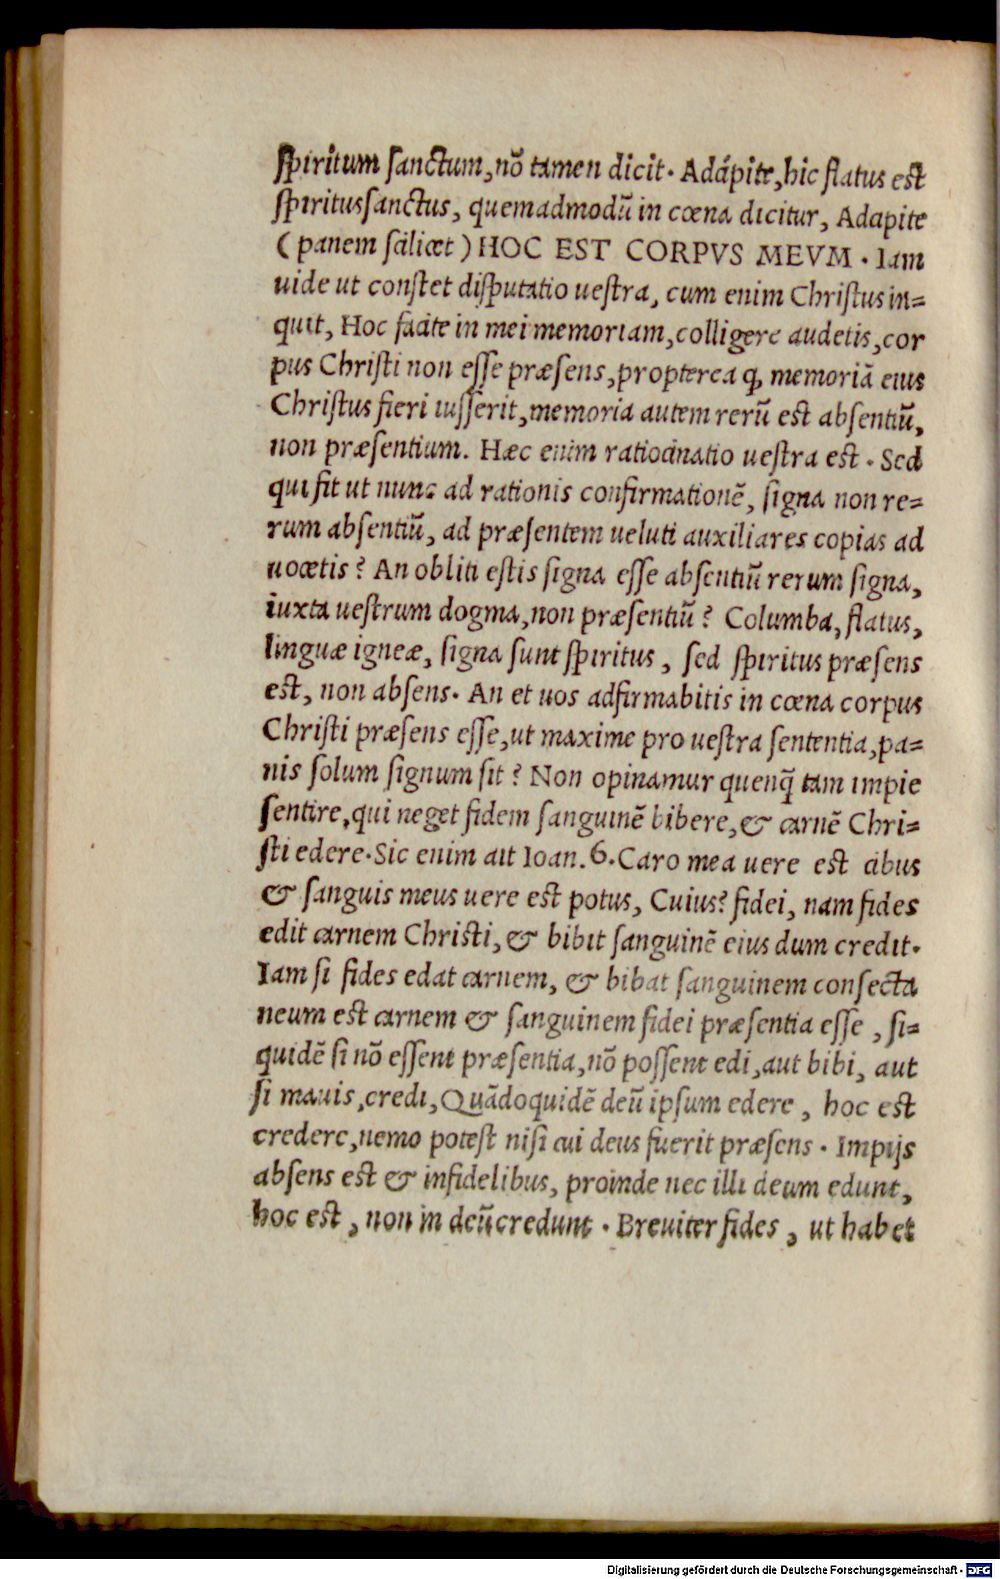 spiritum sanctum, nõ tamen dicit. Adãpite, hic flatus est
spiritussanctus, quemadmodũ in cœna dicitur, Adapite
(panem scilicet) HOC EST CORPVS MEVM. Iam
uide ut constet disputatio uestra, cum enim Christus in=
quit, Hoc facite in mei memoriam, colligere audetis, cor
pus Christi non esse præsens, propterea ꝙ memoriã eius
Christus fieri iusserit, memoria autem rerũ est absentiũ,
non præsentium. Hæc enim ratiocinatio uestra est. Sed
qui fit ut nunc ad rationis confirmationẽ, signa non re=
rum absentiũ, ad præsentem ueluti auxiliares copias ad
uocetis? An obliti estis signa esse absentiũ rerum signa,
iuxta uestrum dogma, non præsentiũ? Columba, flatus,
linguæ igneæ, signa sunt spiritus, sed spiritus præsens
est, non absens. An et uos adfirmabitis in cœna corpus
Christi præsens esse, ut maxime pro uestra sententia, pa=
nis solum signum sit? Non opinamur quenq̃ tam impie
sentire, qui neget fidem sanguinẽ bibere, & carnẽ Chri=
sti edere. Sic enim ait Ioan. 6. Caro mea uere est cibus
& sanguis meus uere est potus, Cuius? fidei, nam fides
edit carnem Christi, & bibit sanguinẽ eius dum credit.
Iam si fides edat carnem, & bibat sanguinem consecta
neum est carnem & sanguinem fidei præsentia esse, si=
quidẽ si nõ essent præsentia, nõ possent edi, aut bibi, aut
si mauis, credi, Quãdoquidẽ deũ ipsum edere, hoc est
credere, nemo potest nisi cui deus fuerit præsens. Impijs
absens est & infidelibus, proinde nec illi deum edunt,
hoc est, non in deũ credunt. Breuiter fides, ut habet
Digitalisierung gefördert durch die Deutsche Forschungsgemeinschaft - DFG